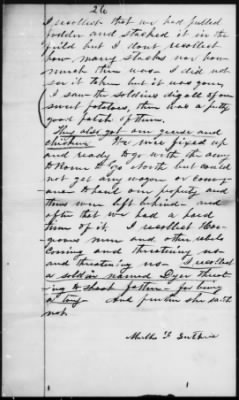 26
I recollect that we had pulled
fodder and stacked it in the
field but I dont recollect
how many stacks nor how
much there was - I did not
see it taken but it was gone,
I saw the soldiers dig all of our
sweet potatoes, there was a pretty
good patch of them.
They also got our geese and
chickens. We were fixed up
and ready to go with the army
to go North but could
not get any wagon or convey-
ance to haul our property and
thus were left behind - and
after that we had a hard
time of it. I recollect
men and other rebels
coming and threatening us -
and threatening us - I recollect
a soldier named Dyer threat-
ing to shoot father - for being
a tory - And further she saith
not.
Martha Guthrie